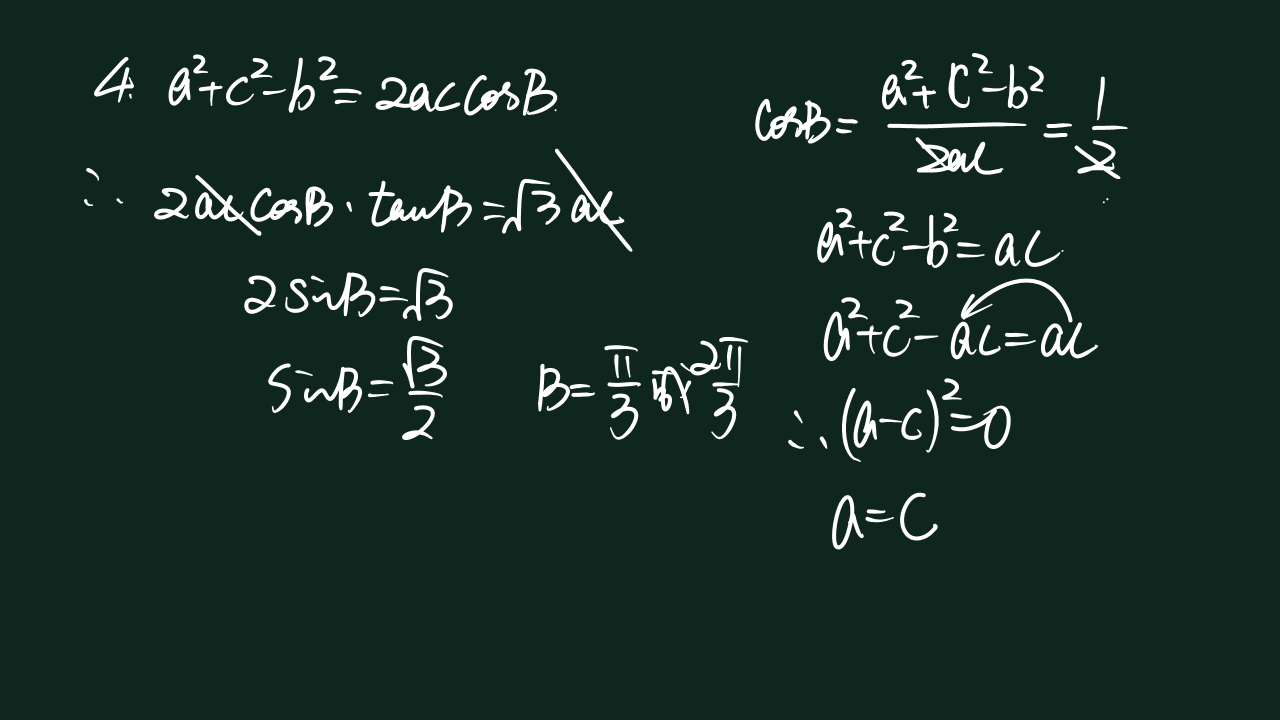 4. a²+c²-b²=2accosB
∴ 2accosB·tanB=√3ac
2sinB=√3
sinB=√3/2 B=π/3 或 2π/3
cosB=(a²+c²-b²)/2ac=1/2
a²+c²-b²=ac
a²+c²-ac=ac
∴(a-c)²=0
a=c